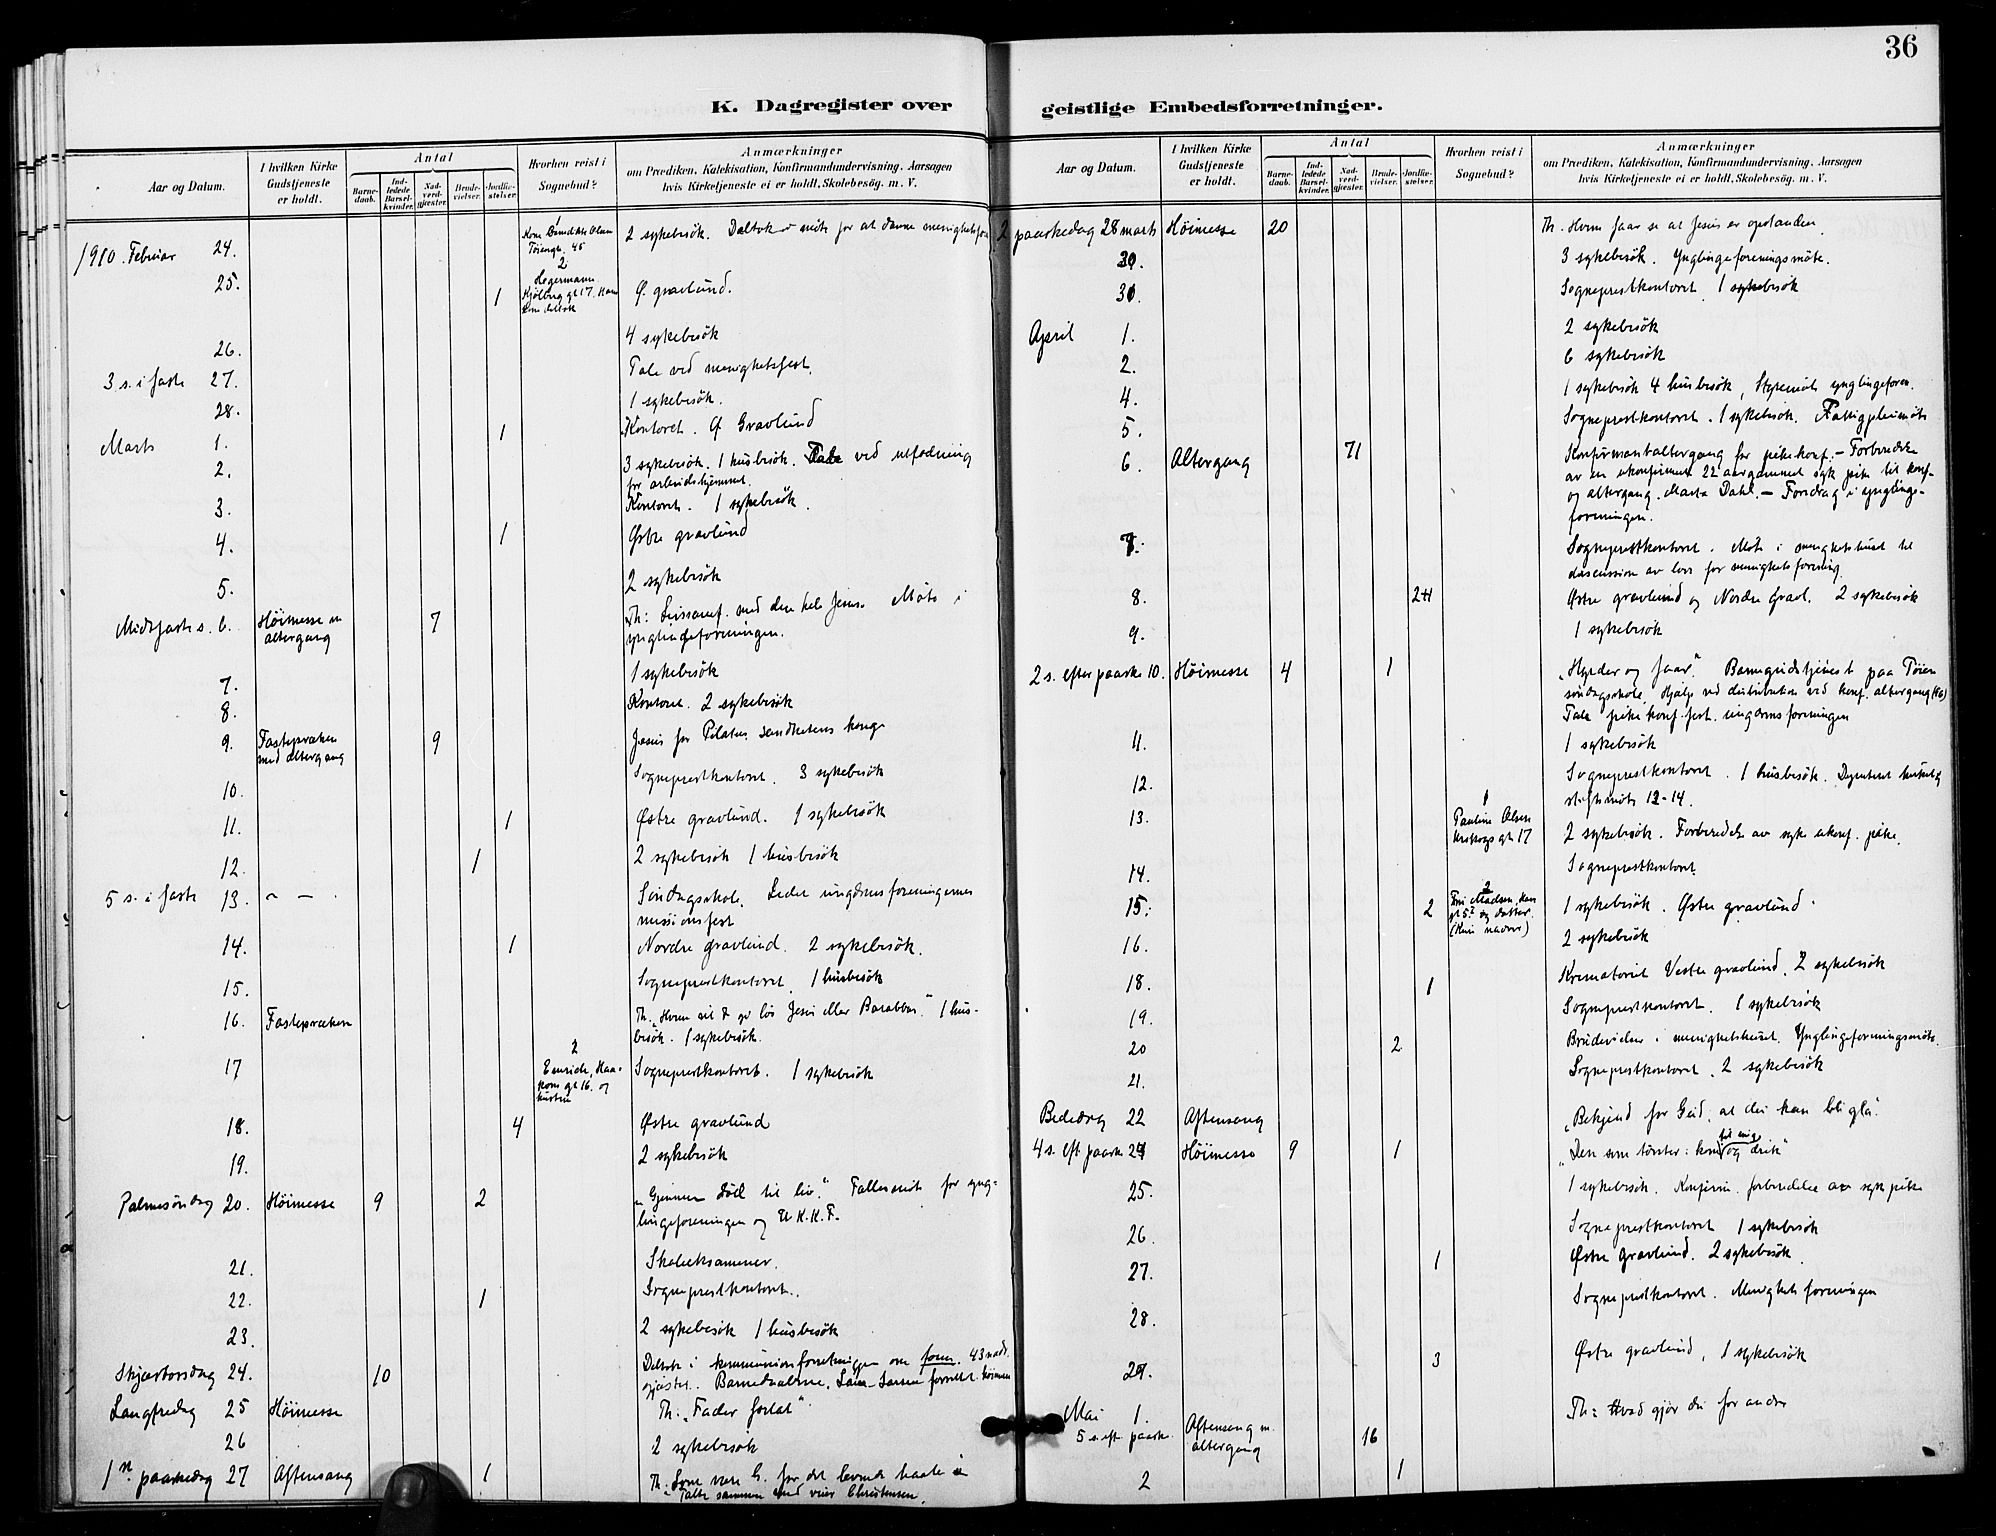 36
K. Dagregister over geistlige Embedsforretninger.
Aar og Datum.
I hvilken Kirke Gudstjeneste er holdt.
Antal
Barne-daab.
Ind-ledede Barsel-kvinder.
Nad-verd-gjæster.
Brude-vielser.
Jordfæ-stelser.
Hvorhen reist i Sognebud?
Anmærkninger
om Prædiken, Katekisation, Konfirmandundervisning, Aarsagen
hvis Kirketjeneste ei er holdt, Skolebesøg. m. V.
1910. Februar 24. Tøieng. 45 2 sykebesök.
25. 1 Ø. gravlund.
26. 4 sykebesök
3 s. i faste 27. Tale ved menighetsfest.
28. 1 sykebesök.
Marts 1. 1 Kontoret. Ø Gravlund
2. 3 sykebesök. 1 husbesök. Tale ved utlodning
for arbeidshjemmet.
3. Kontoret. 1 sykebesök.
4. 1 Østre gravlund
5. 2 sykebesök
Midtfaste s. 6. Höimesse m altergang 7 Möte i
ynglingeforeningen.
7. 1 sykebesök
8. Kontoret. 2 sykebesök
9. Fastepræken med altergang 9 Jesus for Pilatus sandhetens konge
10. Sogneprestkontoret. 3 sykebesök
11. 1 Østre gravlund. 1 sykebesök
12. 1 2 sykebesök 1 husbesök
5 s. i faste 13. - - Söndagsskole. Ledet ungdomsforeningernes
missionsfest
14. 1 Nordre gravlund. 2 sykebesök.
15. Sogneprestkontoret. 1 husbesök
16. Fastepræken Th. "Hvem vil I gi lös Jesus eller Barabbas" 1 hus-
besök. 1 sykebesök.
17 2 Sogneprestkontoret. 1 sykebesök
18. 4 Østre gravlund
19. 2 sykebesök
Palmesöndag 20. Höimesse 9 2 "Gjennem död til liv." Fællesmöte for yng-
lingeforeningen og U.K.K.F.
21. Skoleeksamener.
22. 1 Sogneprestkontoret.
23. 2 sykebesök 1 husbesök
Skjærtorsdag 24. 10 Deltok i kommunionforretningen
Langfredag 25 Höimesse Th: "Fader forlat"
26 2 sykebesök
1ste paaskedag 27 Aftensang 1
Talte sammen med Christensen.
Aar og Datum.
I hvilken Kirke Gudstjeneste er holdt.
Antal
Barne-daab.
Ind-ledede Barsel-kvinder.
Nad-verd-gjæster.
Brude-vielser.
Jordfæ-stelser.
Hvorhen reist i Sognebud?
Anmærkninger
om Prædiken, Katekisation, Konfirmandundervisning, Aarsagen
hvis Kirketjeneste ei er holdt, Skolebesøg. m. V.
2 paaskedag 28 marts Höimesse 20 Th. Hvem faar se at Jesus er opstanden.
30. 3 sykebesök. Ynglingeforeningsmöte.
31. Sogneprestkontoret. 1 sykebesök
April 1. 2 sykebesök
2. 6 sykebesök
4. 1 sykebesök 4 husbesök, Styremöte ynglingeforen.
5. Sogneprestkontoret. 1 sykebesök.
6. Altergang 71 Konfirmantaltergang for pikekonf. - Forberedelse
av en ukonfirmert 22 aar gammel syk pike til konf.
og altergang. Marta Dahl. - Foredrag i ynglinge-
foreningen.
7. Sogneprestkontoret. Möte i menighetshuset til
discussion av lov for menighetsforening.
8. Østre gravlund og Nordre Gravl. 2 sykebesök
9. 1 sykebesök
2 s. efter paaske 10. Höimesse 4 1 "Hyrder og faar". Barnegudstjeneste paa Töien
söndagsskole. Hjalp ved distribution ved konf. altergang
Tale pikekonf. fest. ungdomsforeningen
11. 1 sykebesök
12. Sogneprestkontoret. 1 husbesök.
stiftsmöte 12-14.
13. 1 Pauline Olsen 17 2 sykebesök. Forberedelse av syk ukonf. pike.
14. Sogneprestkontoret
15. 2 2 1 sykebesök. Østre gravlund.
16. 2 sykebesök
18. 1 Krematoriet Vestre gravlund. 2 sykebesök
19. Sogneprestkontoret. 1 sykebesök
20 2 Brudevielser i menighetshuset. Ynglingeforeningsmöte.
21. Sogneprestkontoret. 2 sykebesök
Bededag 22 Aftensang "Bekjend for Gud: at du kan bli gla".
4 s. eft. paaske 24 Höimesse 9 1 "Den som törster: kom til mig og drik"
25. 1 sykebesök. Konfirm. forberedelse av syk pike
26. Sogneprestkontoret 1 sykebesök
27. 1 Østre gravlund. 2 sykebesök.
28. Sogneprestkontoret. Menighetsforeningen
29. 3 Østre gravlund, 1 sykebesök
Mai 1. 5 s. eft. paaske. Aftensang m. altergang 16 Th: Hvad gjör du for andre
2 1